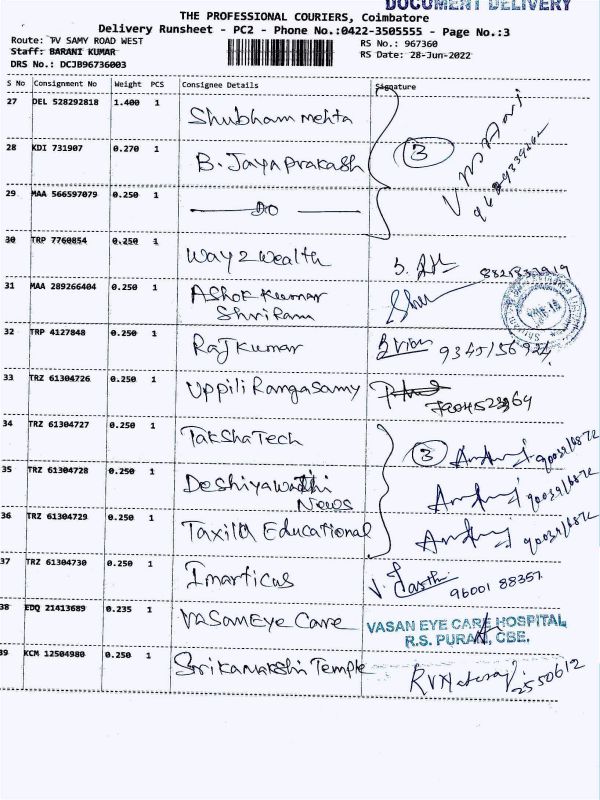 DOCUMENT DELIVERY
THE PROFESSIONAL COURIERS, Coimbatore
Delivery Runsheet - PC2 - Phone No.:0422-3505555 - Page No.:3
Route: TV SAMY ROAD WEST
RS No.: 967360
Staff: BARANI KUMAR
RS Date: 28-Jun-2022
DRS No.: DCJB96736003
S No Consignment No Weight PCS Consignee Details Signature
27 DEL 528292818 1.400 1 Shubham mehta
28 KDI 731907 0.270 1 B. Jayaprakash 3
29 MAA 566597079 0.250 1 DO
30 TRP 7760854 0.250 1 Way 2 Wealth
31 MAA 289266404 0.250 1 Ashok Kumar
Shri Ram
32 TRP 4127848 0.250 1 Raj Kumar
33 TRZ 61304726 0.250 1 Uppili Rangasamy
34 TRZ 61304727 0.250 1 Taksha Tech 3
35 TRZ 61304728 0.250 1
News
36 TRZ 61304729 0.250 1 Taxila Educational
37 TRZ 61304730 0.250 1 Imarticus 96001 88357
38 EDQ 21413689 0.235 1 Vasan Eye Care VASAN EYE CARE HOSPITAL
R.S. PURAM, CBE.
39 KCM 12504980 0.250 1 Sri Kamakshi Temple 2550612